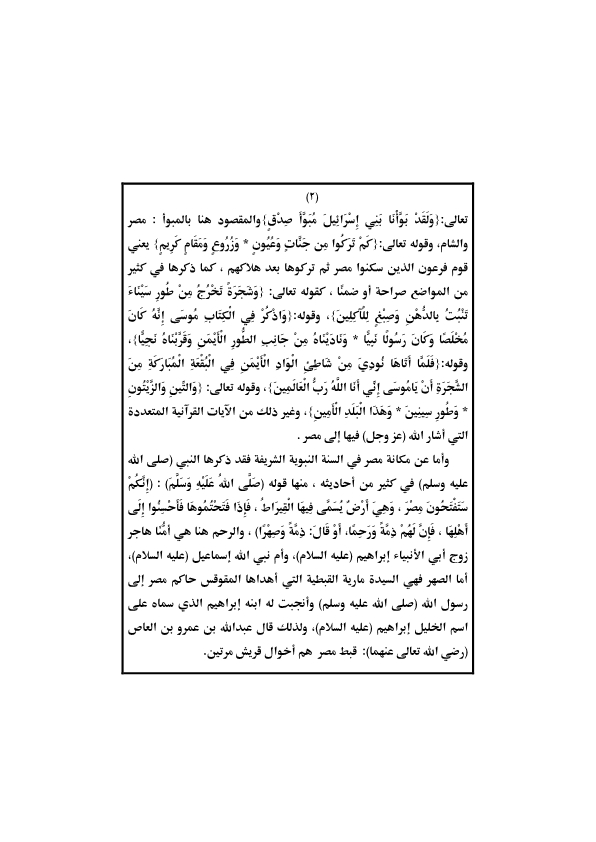 (٢)
تعالى:{وَلَقَدْ بَوَّأْنَا بَنِي إِسْرَائِيلَ مُبَوَّأَ صِدْقٍ}والمقصود هنا بالمبوأ : مصر
والشام، وقوله تعالى:{كَمْ تَرَكُوا مِن جَنَّاتٍ وَعُيُونٍ * وَزُرُوعٍ وَمَقَامٍ كَرِيمٍ} يعني
قوم فرعون الذين سكنوا مصر ثم تركوها بعد هلاكهم ، كما ذكرها في كثير
من المواضع صراحة أو ضمنًا ، كقوله تعالى: {وَشَجَرَةً تَخْرُجُ مِنْ طُورِ سَيْنَاءَ
تَنْبُتُ بِالدُّهْنِ وَصِبْغٍ لِلْآكِلِينَ}، وقوله:{وَاذْكُرْ فِي الْكِتَابِ مُوسَى إِنَّهُ كَانَ
مُخْلَصًا وَكَانَ رَسُولًا نَبِيًّا * وَنَادَيْنَاهُ مِنْ جَانِبِ الطُّورِ الْأَيْمَنِ وَقَرَّبْنَاهُ نَجِيًّا}،
وقوله:{فَلَمَّا أَتَاهَا نُودِيَ مِنْ شَاطِئِ الْوَادِ الْأَيْمَنِ فِي الْبُقْعَةِ الْمُبَارَكَةِ مِنَ
الشَّجَرَةِ أَنْ يَامُوسَى إِنِّي أَنَا اللَّهُ رَبُّ الْعَالَمِينَ}، وقوله تعالى: {وَالتِّينِ وَالزَّيْتُونِ
* وَطُورِ سِينِينَ * وَهَذَا الْبَلَدِ الْأَمِينِ}، وغير ذلك من الآيات القرآنية المتعددة
التي أشار الله (عز وجل) فيها إلى مصر .
وأما عن مكانة مصر في السنة النبوية الشريفة فقد ذكرها النبي (صلى الله
عليه وسلم) في كثير من أحاديثه ، منها قوله (صَلَّى اللهُ عَلَيْهِ وَسَلَّمَ) : (إِنَّكُمْ
سَتَفْتَحُونَ مِصْرَ ، وَهِيَ أَرْضٌ يُسَمَّى فِيهَا الْقِيرَاطُ ، فَإِذَا فَتَحْتُمُوهَا فَأَحْسِنُوا إِلَى
أَهْلِهَا ، فَإِنَّ لَهُمْ ذِمَّةً وَرَحِمًا، أَوْ قَالَ: ذِمَّةً وَصِهْرًا) ، والرحم هنا هي أمُّنا هاجر
زوج أبي الأنبياء إبراهيم (عليه السلام)، وأم نبي الله إسماعيل (عليه السلام)،
أما الصهر فهي السيدة مارية القبطية التي أهداها المقوقس حاكم مصر إلى
رسول الله (صلى الله عليه وسلم) وأنجبت له ابنه إبراهيم الذي سماه على
اسم الخليل إبراهيم (عليه السلام)، ولذلك قال عبدالله بن عمرو بن العاص
(رضي الله تعالى عنهما): قبط مصر هم أخوال قريش مرتين.